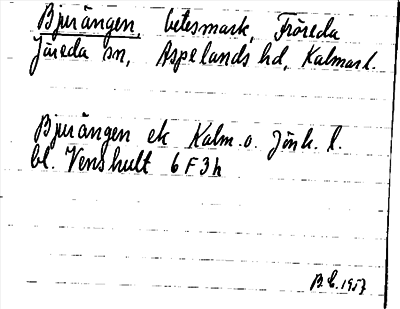 Bjurängen, betesmark, Fröreda
Järeda sn, Aspelands hd, Kalmar l.
Bjurängen ek Kalm. o. Jönk. l.
bl. Venshult 6 F 3 h
B.E. 1957